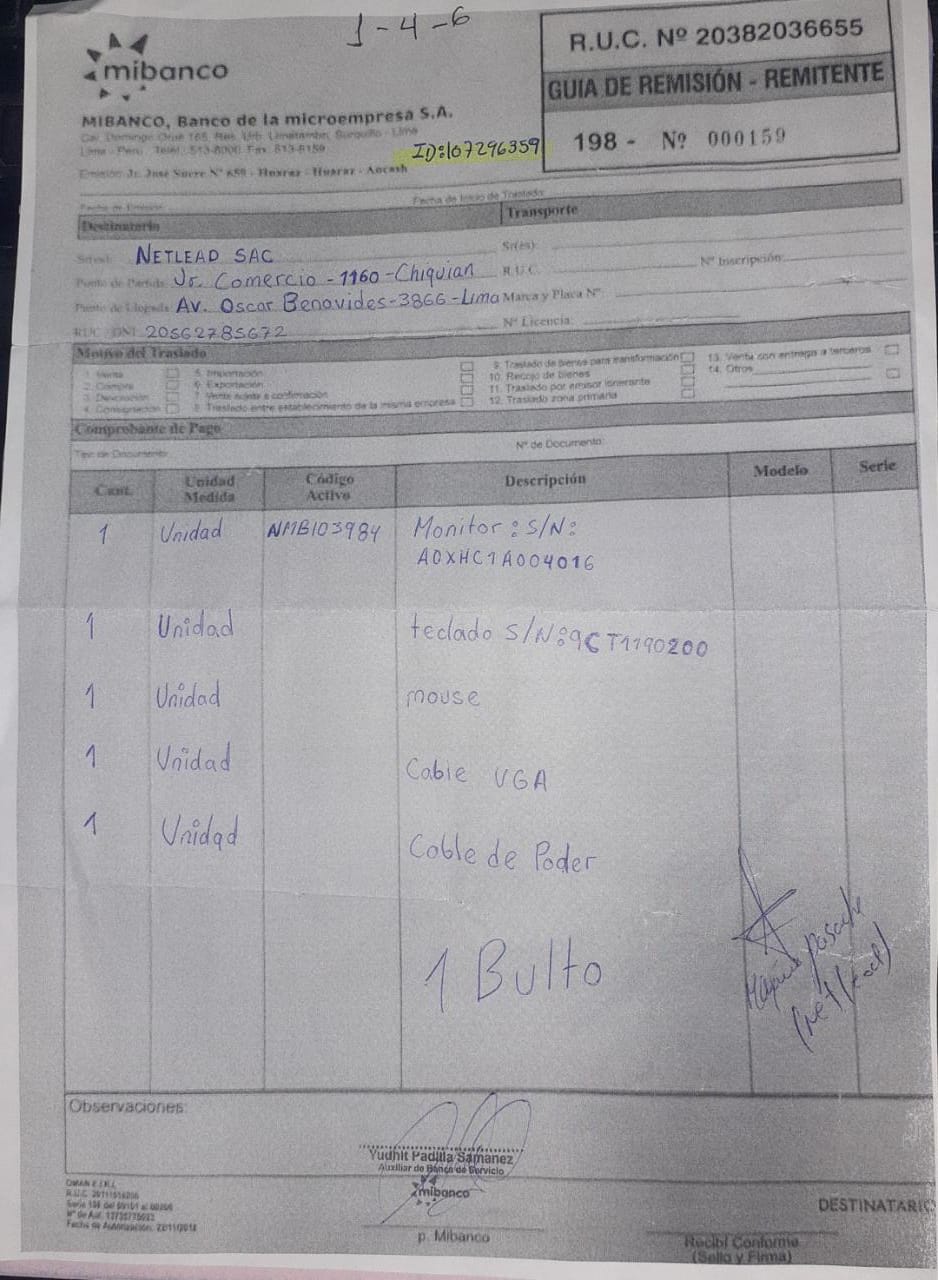 1-4-6
mibanco
R.U.C. Nº 20382036655
GUIA DE REMISIÓN - REMITENTE
198 - Nº 000159
MIBANCO, Banco de la microempresa S.A.
ID:107296359
Emisión: Jr. José Sucre Nº 659 - Huaraz - Huaraz - Ancash
Fecha de Emisión:
Fecha de Inicio de Traslado:
Destinatario
Transporte
NETLEAD SAC
Sr(es):
Punto de Partida: Jr. Comercio - 1160 - Chiquian
R.U.C.
Nº Inscripción:
Punto de Llegada: Av. Oscar Benavides - 3866 - Lima
Marca y Placa Nº:
RUC / DNI: 20562785672
Nº Licencia:
Motivo del Traslado
1. Venta
2. Compra
3. Devolución
4. Consignación
5. Importación
6. Exportación
7. Venta sujeta a confirmación
8. Traslado entre establecimiento de la misma empresa
9. Traslado de bienes para transformación
10. Recojo de bienes
11. Traslado por emisor itinerante
12. Traslado zona primaria
13. Venta con entrega a terceros
14. Otros
Comprobante de Pago
Tipo de Documento:
Nº de Documento:
Cant. Unidad Medida Código Activo Descripción Modelo Serie
1 Unidad NMB103984 Monitor: S/N:
A0XHC1A004016
1 Unidad teclado S/N:9CT1190200
1 Unidad mouse
1 Unidad Cable VGA
1 Unidad Cable de Poder
1 Bulto
Observaciones:
Yudhit Padilla Samanez
Auxiliar de Banca de Servicio
mibanco
p. Mibanco
DESTINATARIO
Recibí Conforme
(Sello y Firma)